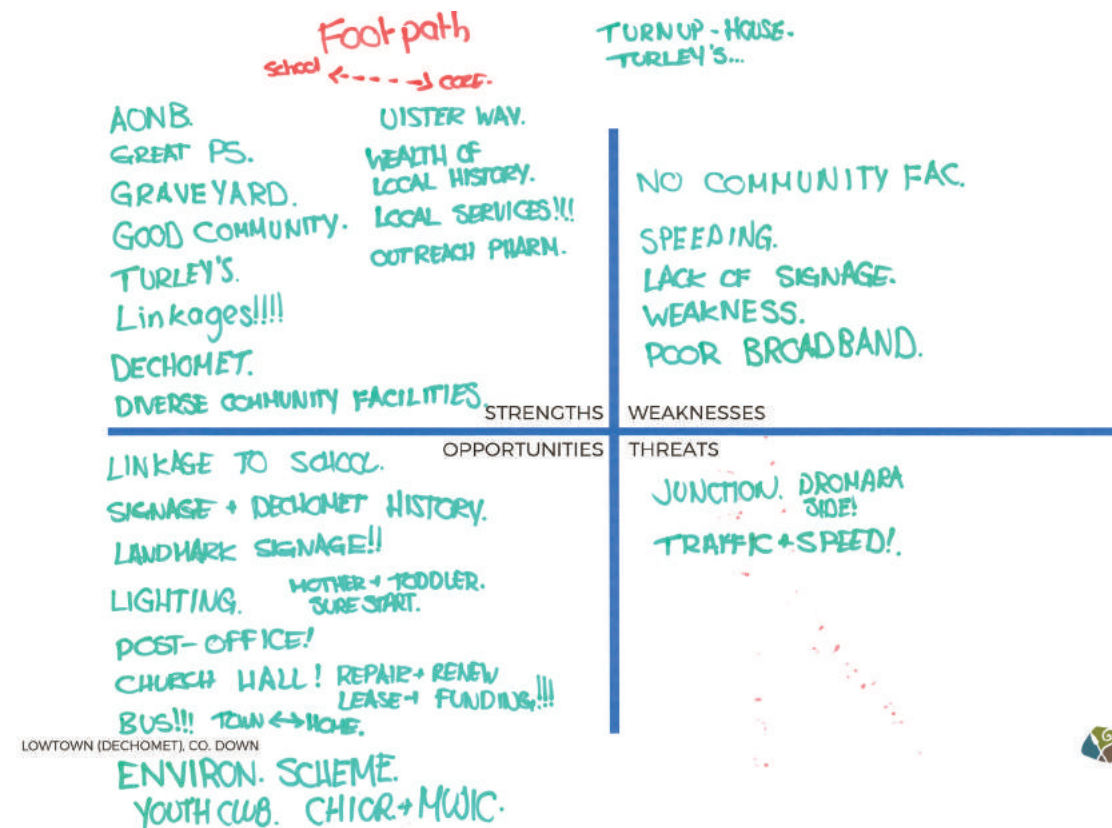 Footpath
School <----> CORE.
TURNUP - HOUSE.
TURLEY'S...
AONB.
GREAT PS.
GRAVEYARD.
GOOD COMMUNITY.
TURLEY'S.
Linkages!!!!
DECHOMET.
DIVERSE COMMUNITY FACILITIES.
UISTER WAY.
WEALTH OF
LOCAL HISTORY.
LOCAL SERVICES!!!
OUTREACH PHARM.
STRENGTHS
NO COMMUNITY FAC.
SPEEDING.
LACK OF SIGNAGE.
WEAKNESS.
POOR BROADBAND.
WEAKNESSES
OPPORTUNITIES
LINKAGE TO SCHOOL.
SIGNAGE + DECHOMET HISTORY.
LANDMARK SIGNAGE!!
LIGHTING.
MOTHER + TODDLER.
SURE START.
POST-OFFICE!
CHURCH HALL! REPAIR + RENEW
LEASE + FUNDING!!!
BUS!!! TOWN <-> HOME.
ENVIRON. SCHEME.
YOUTH CLUB. CHIOR + MUSIC.
THREATS
JUNCTION. DROMARA
SIDE!
TRAFFIC + SPEED!.
LOWTOWN (DECHOMET), CO. DOWN